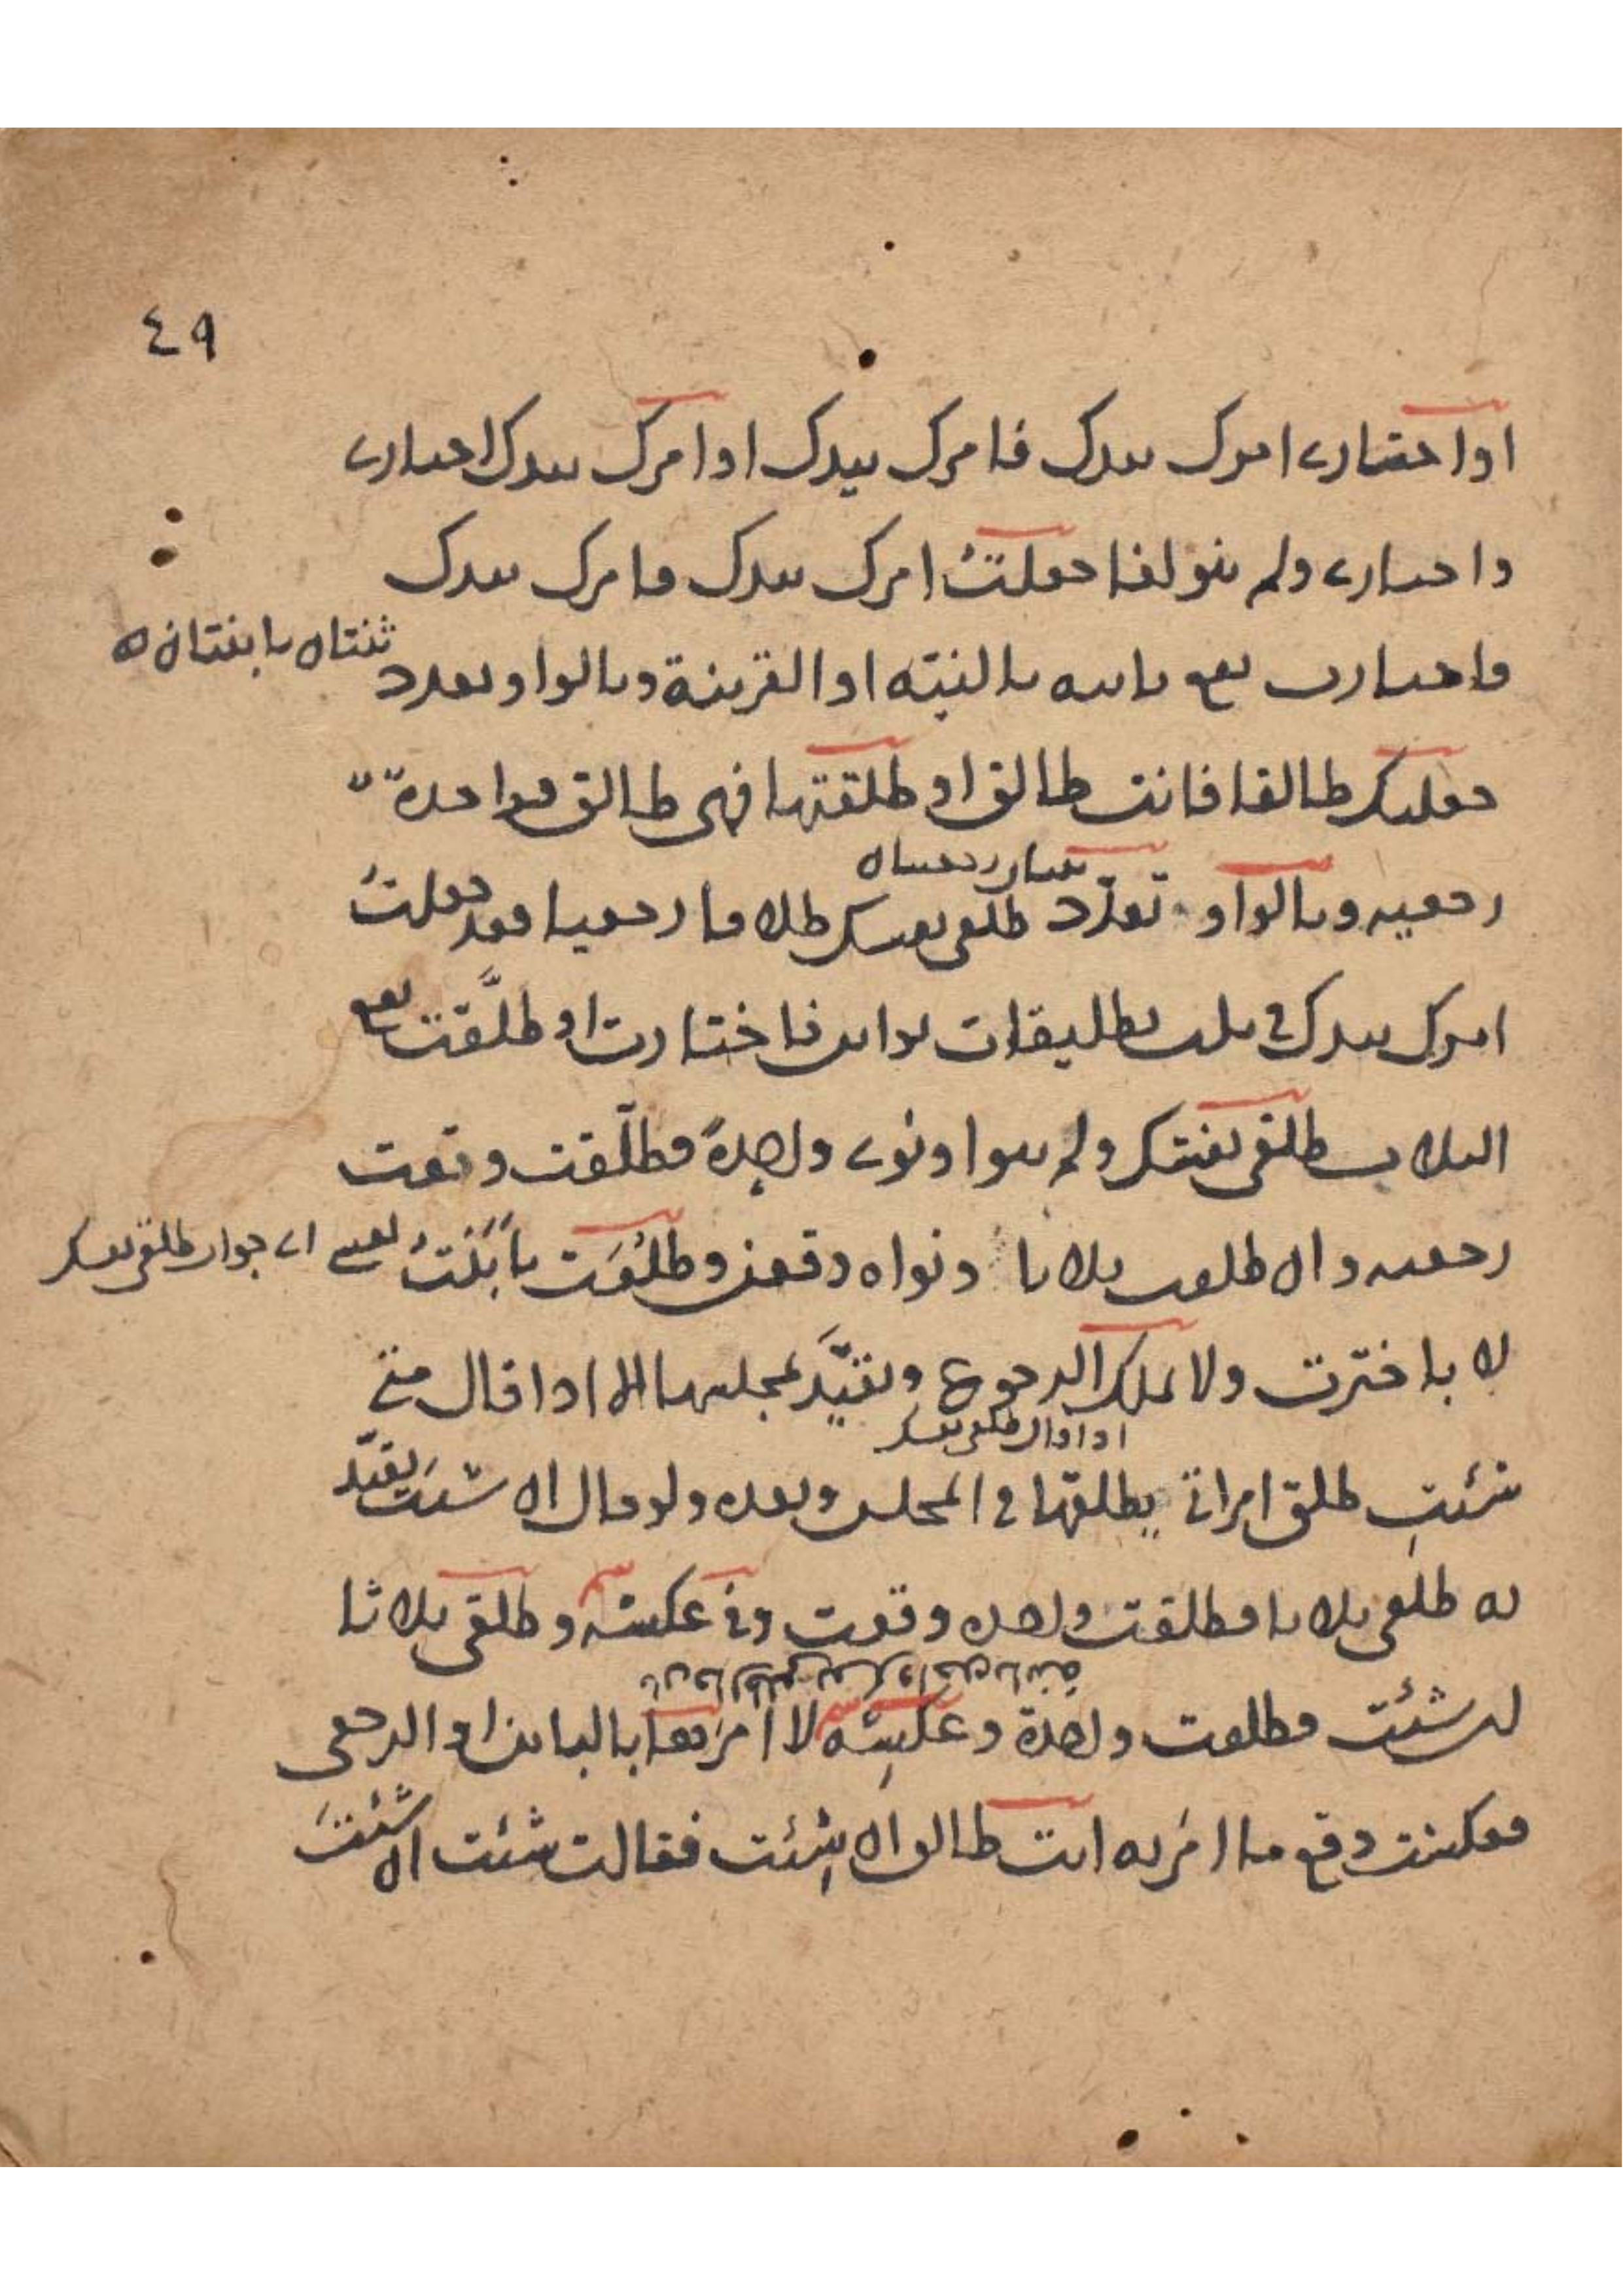 ٤٩
او اختاري امرك بيدك فامرك بيدك او امرك بيدك اختاري
واختاري ولم ينو لغا جعلتُ امرك بيدك وامرك بيدك
واختاري يقع بائنه بالنيّه او القرينة وبالواو تعدد
ثنتان بائنتان
جعلتك طالقا فانت طالق او طلقتها فهي طالق فواحدة
رجعيه وبالواو تعدّد طلقي نفسك طلاقا رجعيا فقد جعلتُ
ثنتان رجعيتان
امرك بيدك في ثلث تطليقات بواين فاختارت او طلّقت يقع
الثلاث طلقي نفسك ولم ينو او نوى واحدةً فطلّقت وقعت
رجعيه وان طلقت ثلاثا ونواه وقعن وطُلّقت بأبَنْتُ نفسي
اي جواب طلقي نفسك
لا باختَرت ولا يملك الرجوع وتقيَّد بمجلسها الا اذا قال متى
شئتِ طلق امراتي يطلقها في المجلس وبعده ولو قال ان شئتَ يقيّد
او اذا قال طلقي نفسك
له طلقي ثلاثا فطلقت واحده وقعت وفي عكسِه وطلقي ثلاثا
ان شئت فطلقت واحدة وعكسِه لا امَرها بالبائن او الرجعي
فعكست وقع ما امَر به انت طالق ان شِئت فقالت شئت ان شئتَ